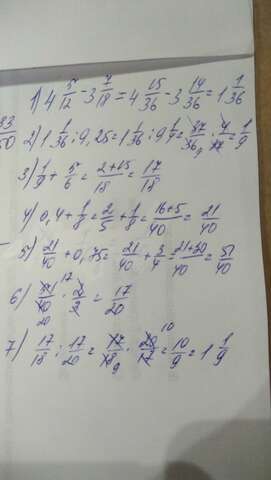 1) 4 5/12 - 3 7/18 = 4 15/36 - 3 14/36 = 1 1/36
2) 1 1/36 : 9,25 = 1 1/36 : 9 1/4 = 37/36 9 · 4/37 = 1/9
3) 1/9 + 5/6 = 2+15/18 = 17/18
4) 0,4 + 1/8 = 2/5 + 1/8 = 16+5/40 = 21/40
5) 21/40 + 0,75 = 21/40 + 3/4 = 21+30/40 = 51/40
6) 51/40 17 20 · 2/3 = 17/20
7) 17/18 : 17/20 = 17/18 9 · 20/17 10 = 10/9 = 1 1/9